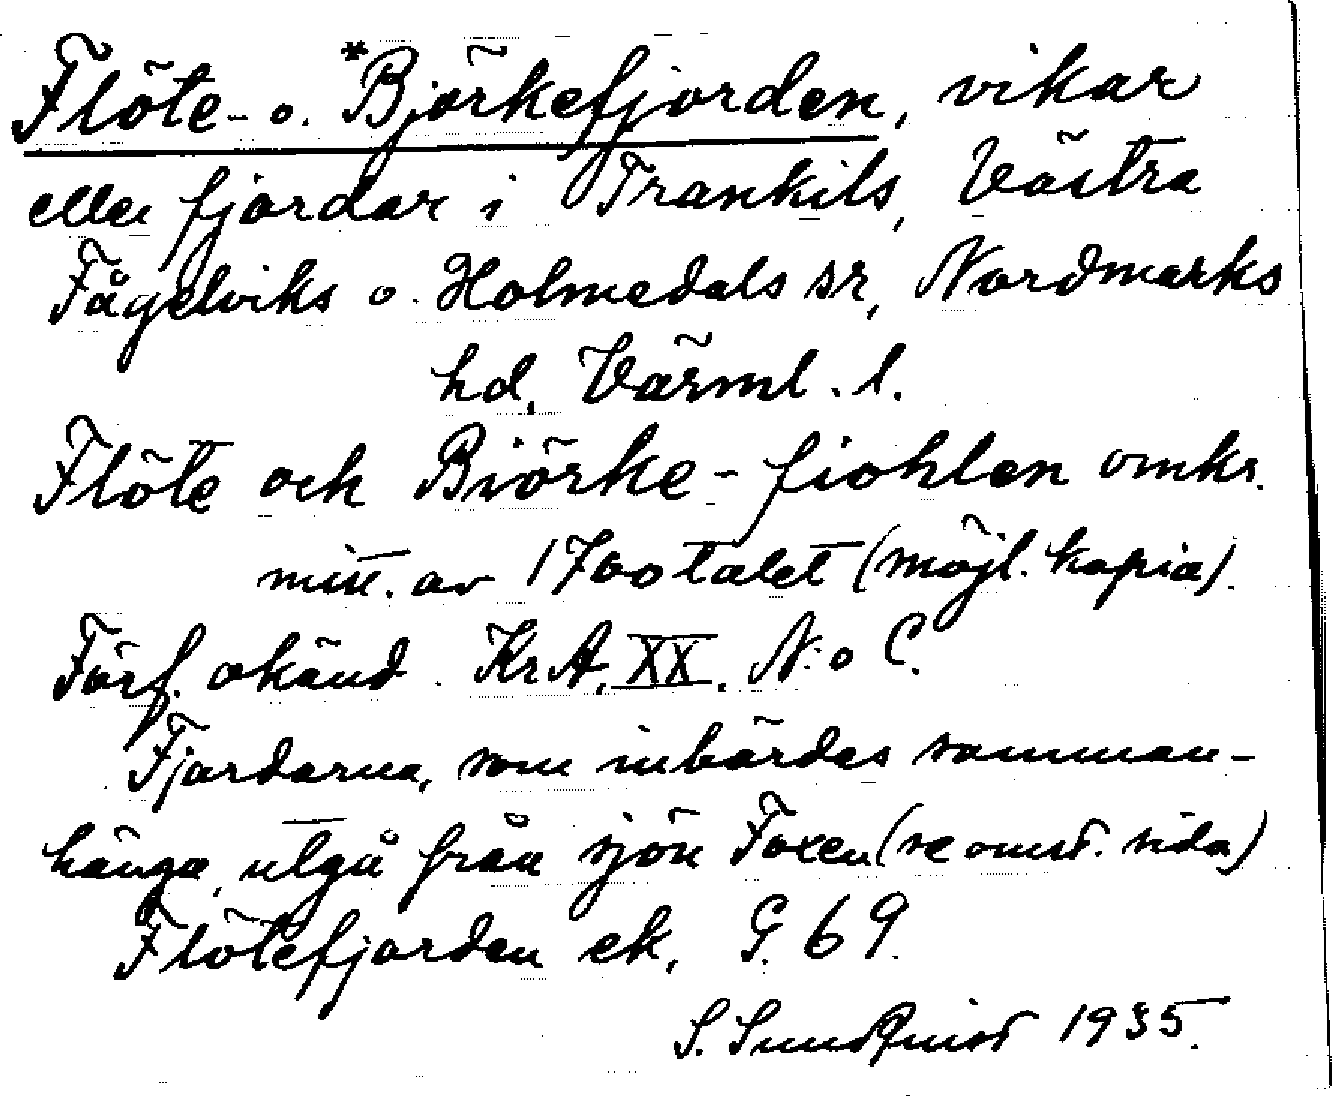 Flöte- o. *Björkefjorden, vikar
eller fjärdar i Trankils, Västra
Fågelviks o. Holmedals sr, Nordmarks
hd, Värml. l.
Flöte och Biörke-fiohlen omkr.
mitt. av 1700talet (möjl. kopia).
Förf. okänd. KrA. XX. N:o C.
Fjärdarna, som inbördes samman-
hänga, utgå från sjön Foxen (se omst. sida)
Flötefjorden ek. G. 69.
S. Sundquist 1935.